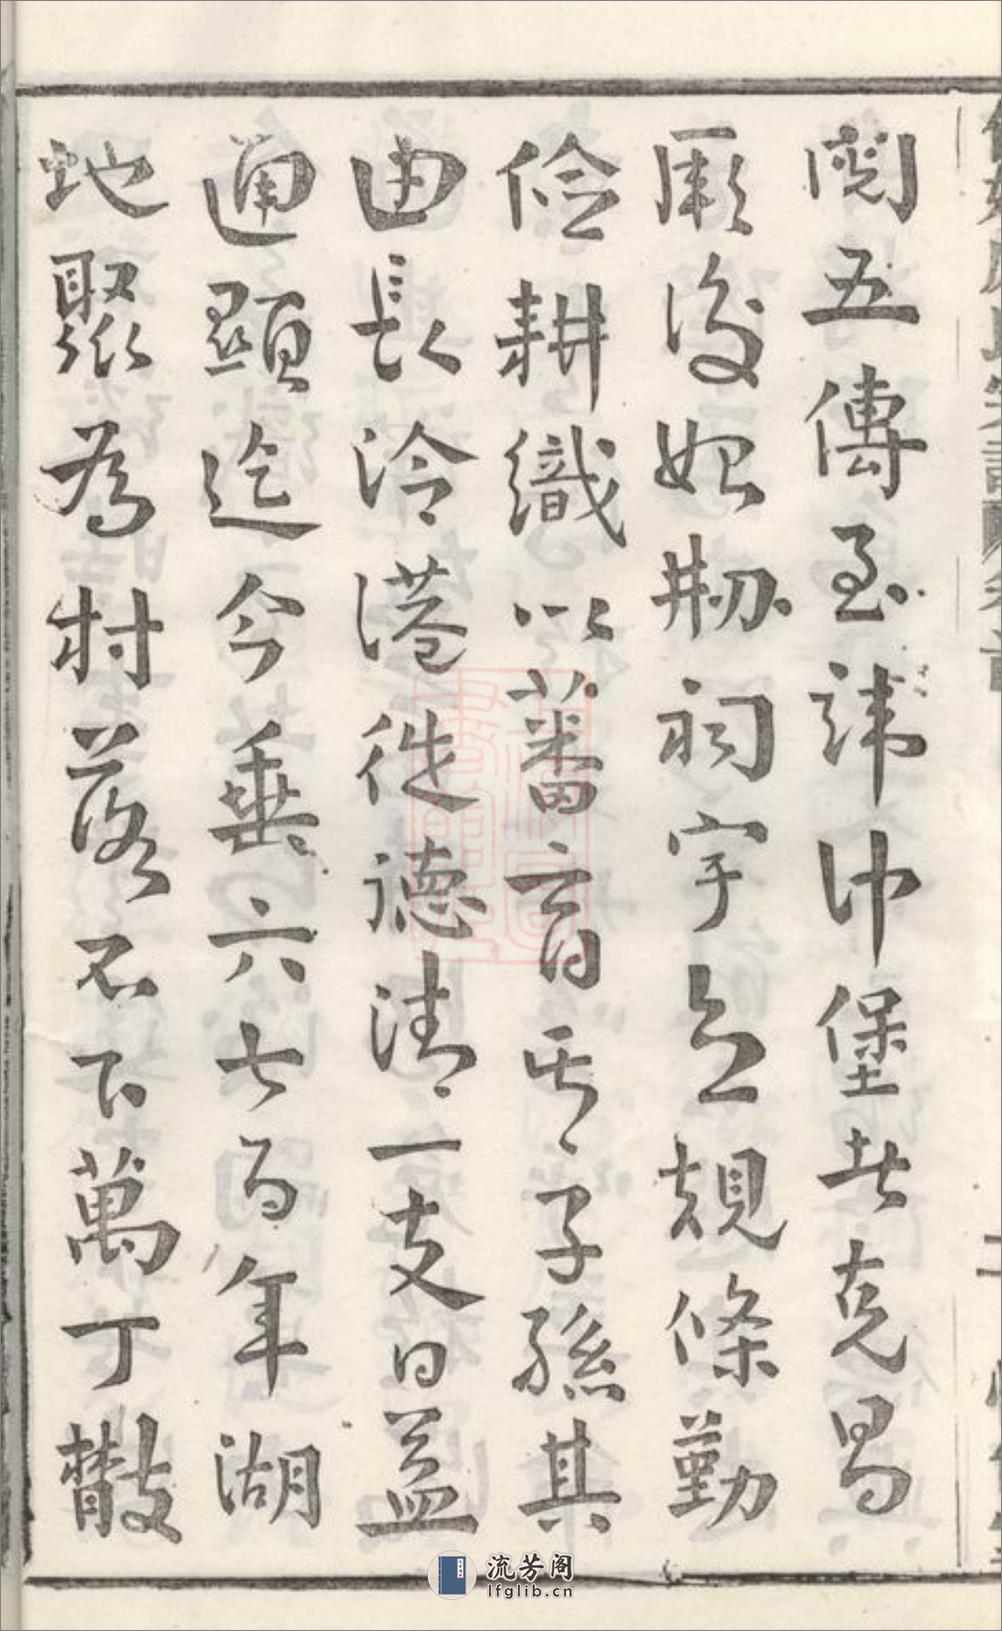 閱五傳至諱仲堡者克昌
厥後始剏祠宇立規條勤
儉耕織以蕃育其子孫其
由長泠港徙德清一支日益
通顯迄今垂六七百年湖
地聚為村落不下萬丁散
流芳阁
lfglib.cn